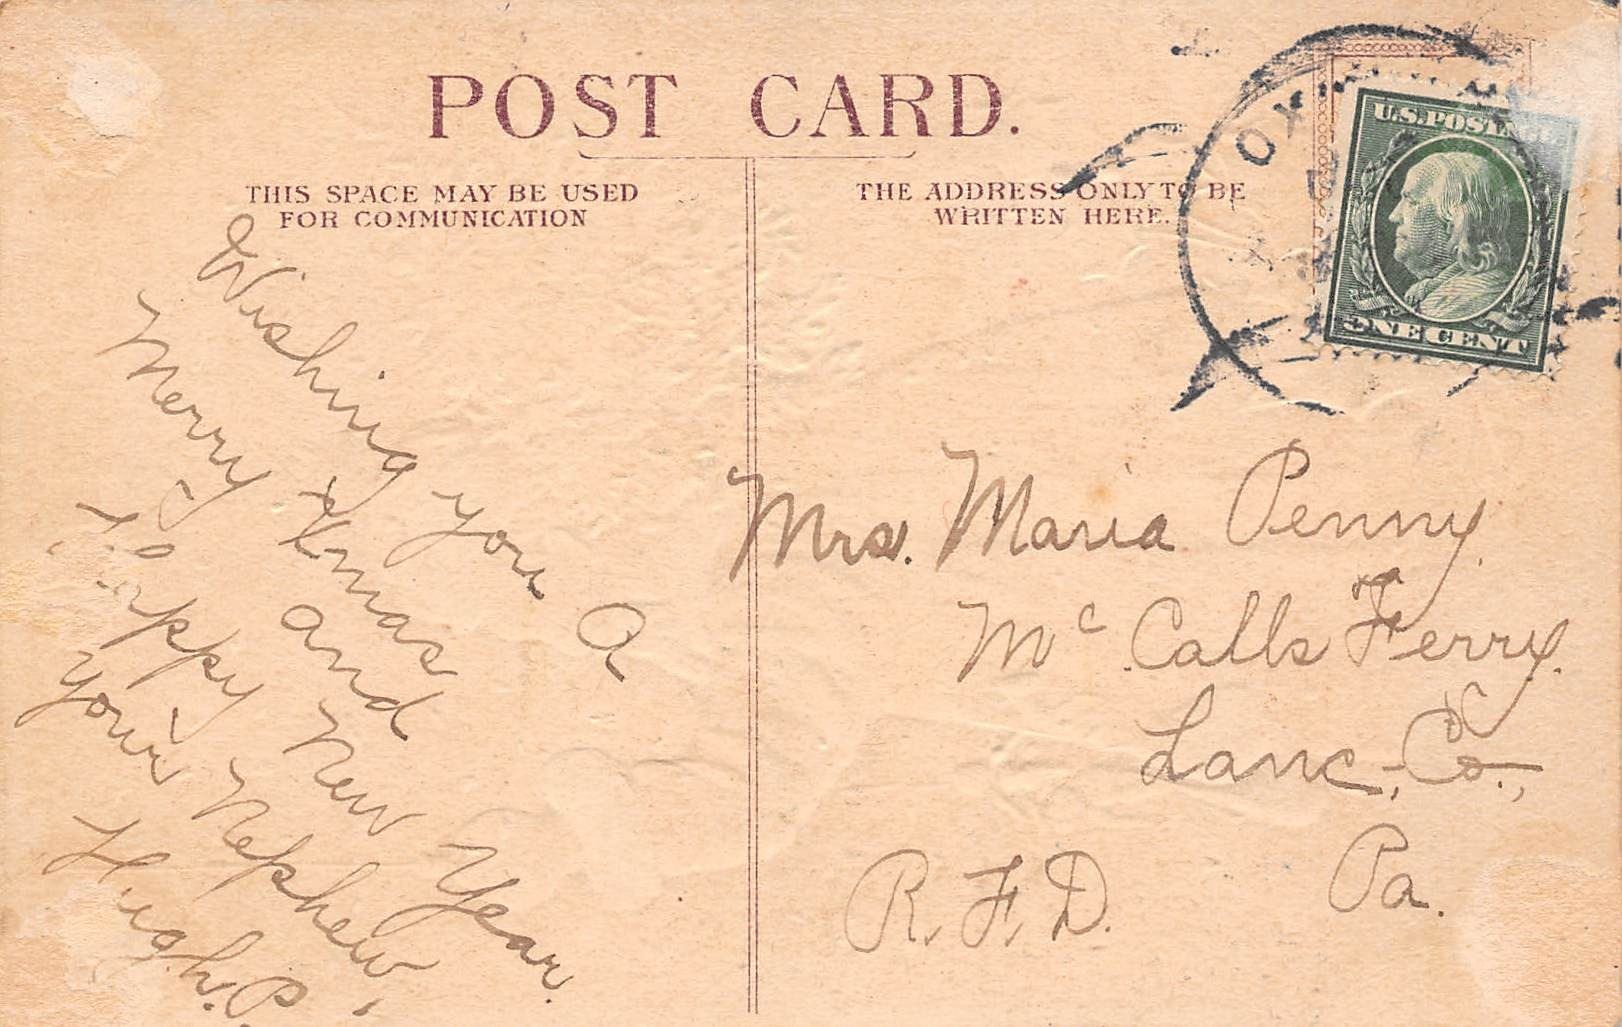 POST CARD.
THIS SPACE MAY BE USED
FOR COMMUNICATION
THE ADDRESS ONLY TO BE
WRITTEN HERE.
OX
U.S. POSTAGE
ONE CENT
Wishing you a
Merry Xmas
and
Happy New Year.
Your Nephew,
Hugh. P.
Mrs. Maria Penny.
Mc Calls Ferry.
Lanc, Co.,
Pa.
R. F. D.